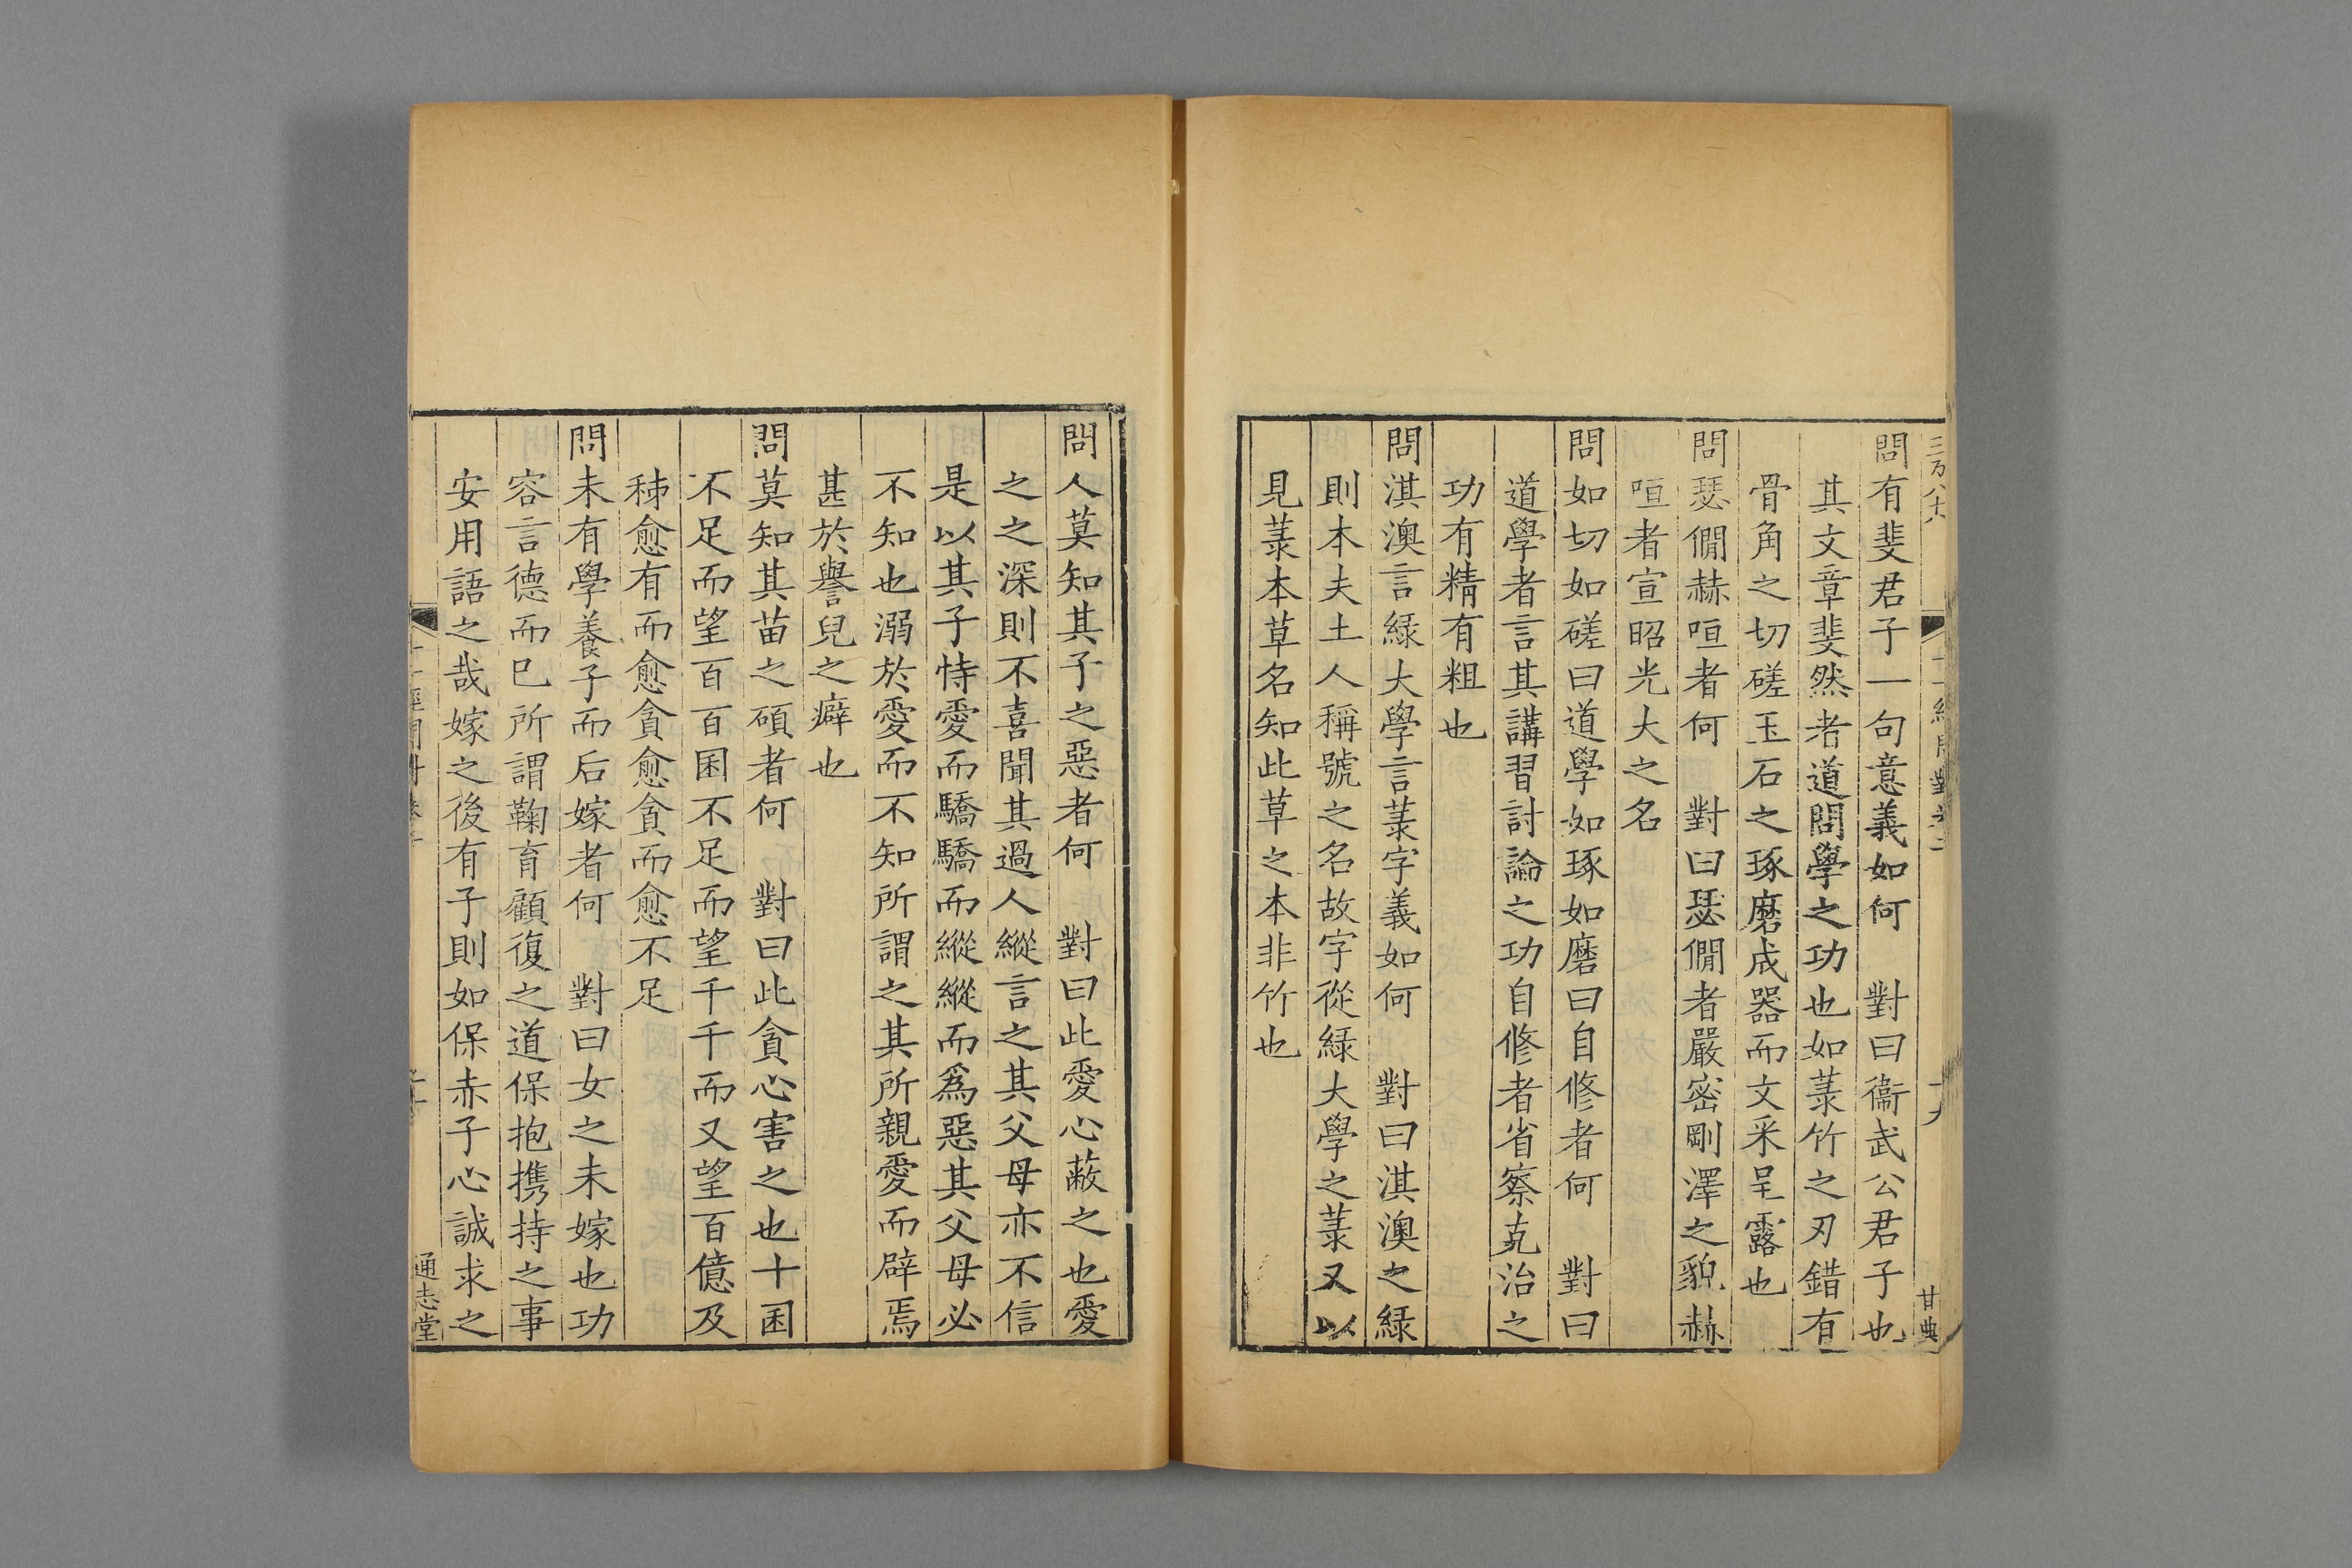 問有斐君子一句意義如何　對曰衞武公君子也
其文章斐然者道問學之功也如菉竹之刃錯有
骨角之切磋玉石之琢磨成器而文采呈露也
問瑟僩赫咺者何　對曰瑟僩者嚴密剛澤之貌赫
咺者宣昭光大之名
問如切如磋曰道學如琢如磨曰自修者何　對曰
道學者言其講習討論之功自修者省察克治之
功有精有粗也
問淇澳言綠大學言菉字義如何　對曰淇澳之綠
則本夫土人稱號之名故字從綠大學之菉又以
見菉本草名知此草之本非竹也
甘典
問人莫知其子之惡者何　對曰此愛心蔽之也愛
之之深則不喜聞其過人縱言之其父母亦不信
是以其子恃愛而驕驕而縱縱而爲惡其父母必
不知也溺於愛而不知所謂之其所親愛而辟焉
甚於譽兒之癖也
問莫知其苗之碩者何　對曰此貪心害之也十囷
不足而望百百囷不足而望千千而又望百億及
秭愈有而愈貪愈貪而愈不足
問未有學養子而后嫁者何　對曰女之未嫁也功
容言德而已所謂鞠育顧復之道保抱携持之事
安用語之哉嫁之後有子則如保赤子心誠求之
通志堂